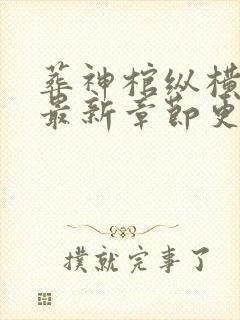 葬神棺纵横
最新章节更
撲就完事了